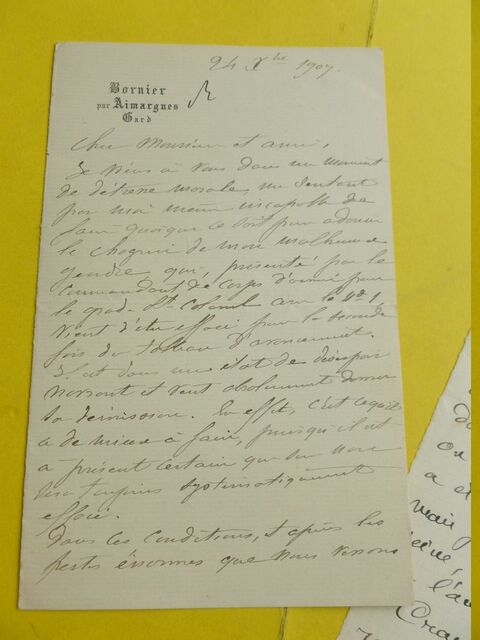 24 Xbre 1907.
Bornier
par Aimargues
Gard
R
Cher Monsieur et ami,
Je viens à vous dans un moment
de détresse morale, me sentant
par moi même incapable de
faire quoique ce soit pour adoucir
le chagrin de mon malheureux
gendre qui, présenté par le
Commandant de Corps d'armée pour
le grade Lt Colonel avec le No 1
vient d'être effacé pour la seconde
fois du tableau d'avancement.
Il est dans un état de désespoir
navrant et veut absolument donner
sa démission. En effet, c'est ce qu'il
a de mieux à faire, puisqu'il est
à présent certain que son nom
sera toujours systématiquement
effacé.
Dans ces conditions, et après les
pertes énormes que nous venons
on
a é
mais
l'au